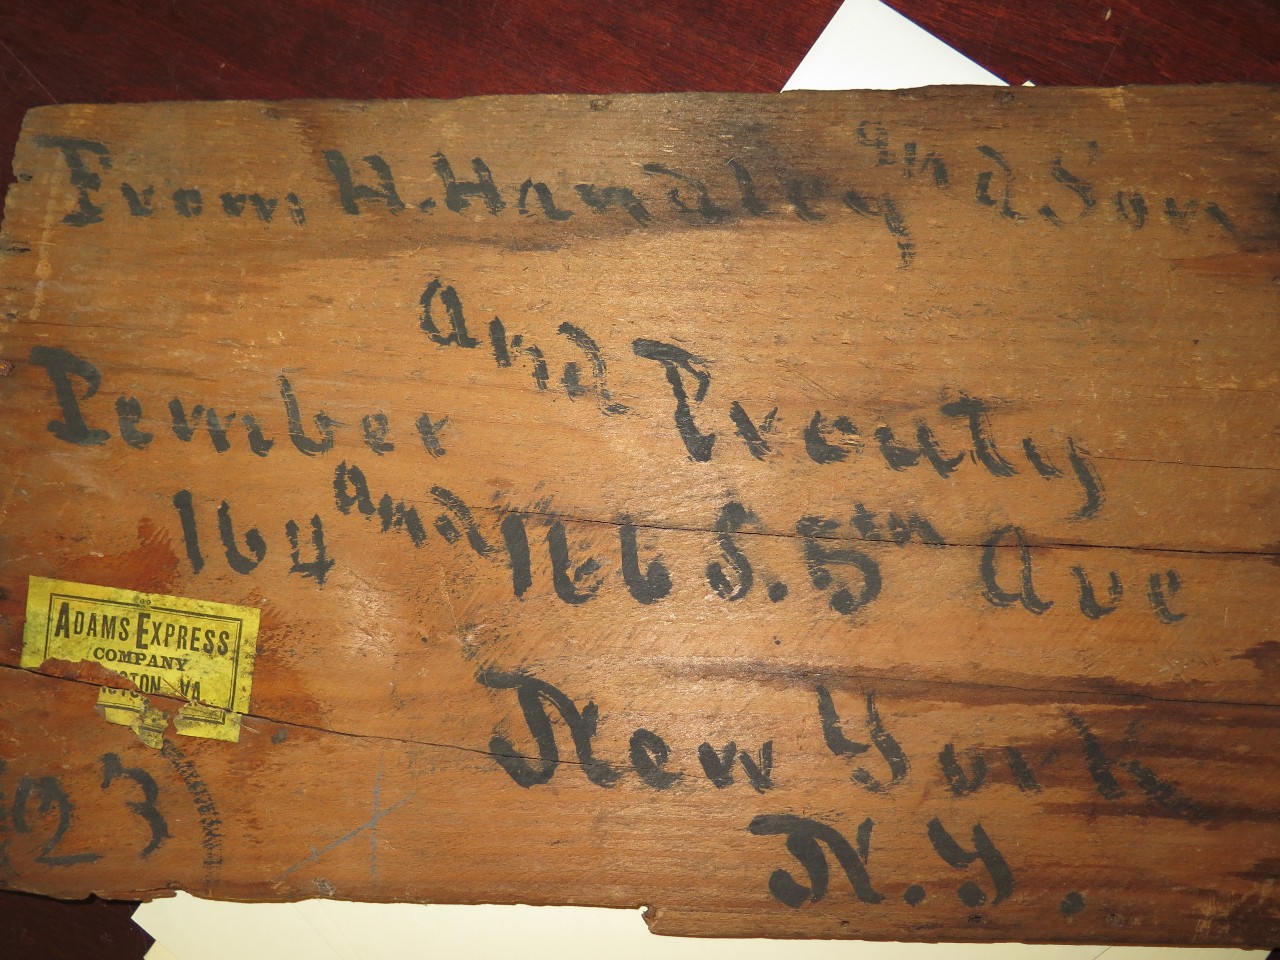 From H. Handley and Son
and
Pember Prouty
164 and 166 S. 5th Ave
ADAMS EXPRESS
COMPANY
VA.
New York
N.Y.